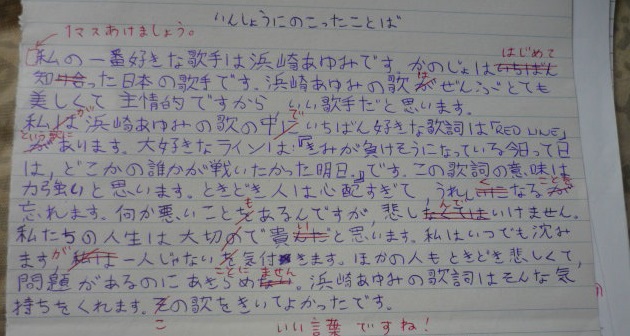 いんしょうにのこったことば
1マスあけましょう。
私の一番好きな歌手は浜崎あゆみです。かのじょはいちばん
はじめて
知り合った日本の歌手です。浜崎あゆみの歌がぜんぶとても
は
美しくて 主情的ですから いい歌手だと思います。
私は浜崎あゆみの歌の中 いちばん好きな歌詞は「RED LINE」
が
で
という歌に
があります。大好きなラインは:『きみが負けそうになっている今日って日
は, どこかの誰かが戦いたかった明日.』です。この歌詞の意味は
力強いと思います。ときどき人は心配すぎて うれ なる
忘れます。何が悪いこと あるんですが, 悲し いけません。
も
んで
私たちの人生は大切ので貴 だと思います。私はいつでも沈み
い
ますが 私は一人じゃない を気付きます。ほかの人もときどき悲しくて,
問題があるのにあきらめ 。浜崎あゆみの歌詞はそんな気
ことに
ません
持ちをくれます。その歌をきいてよかったです。
こ
いい言葉ですね!